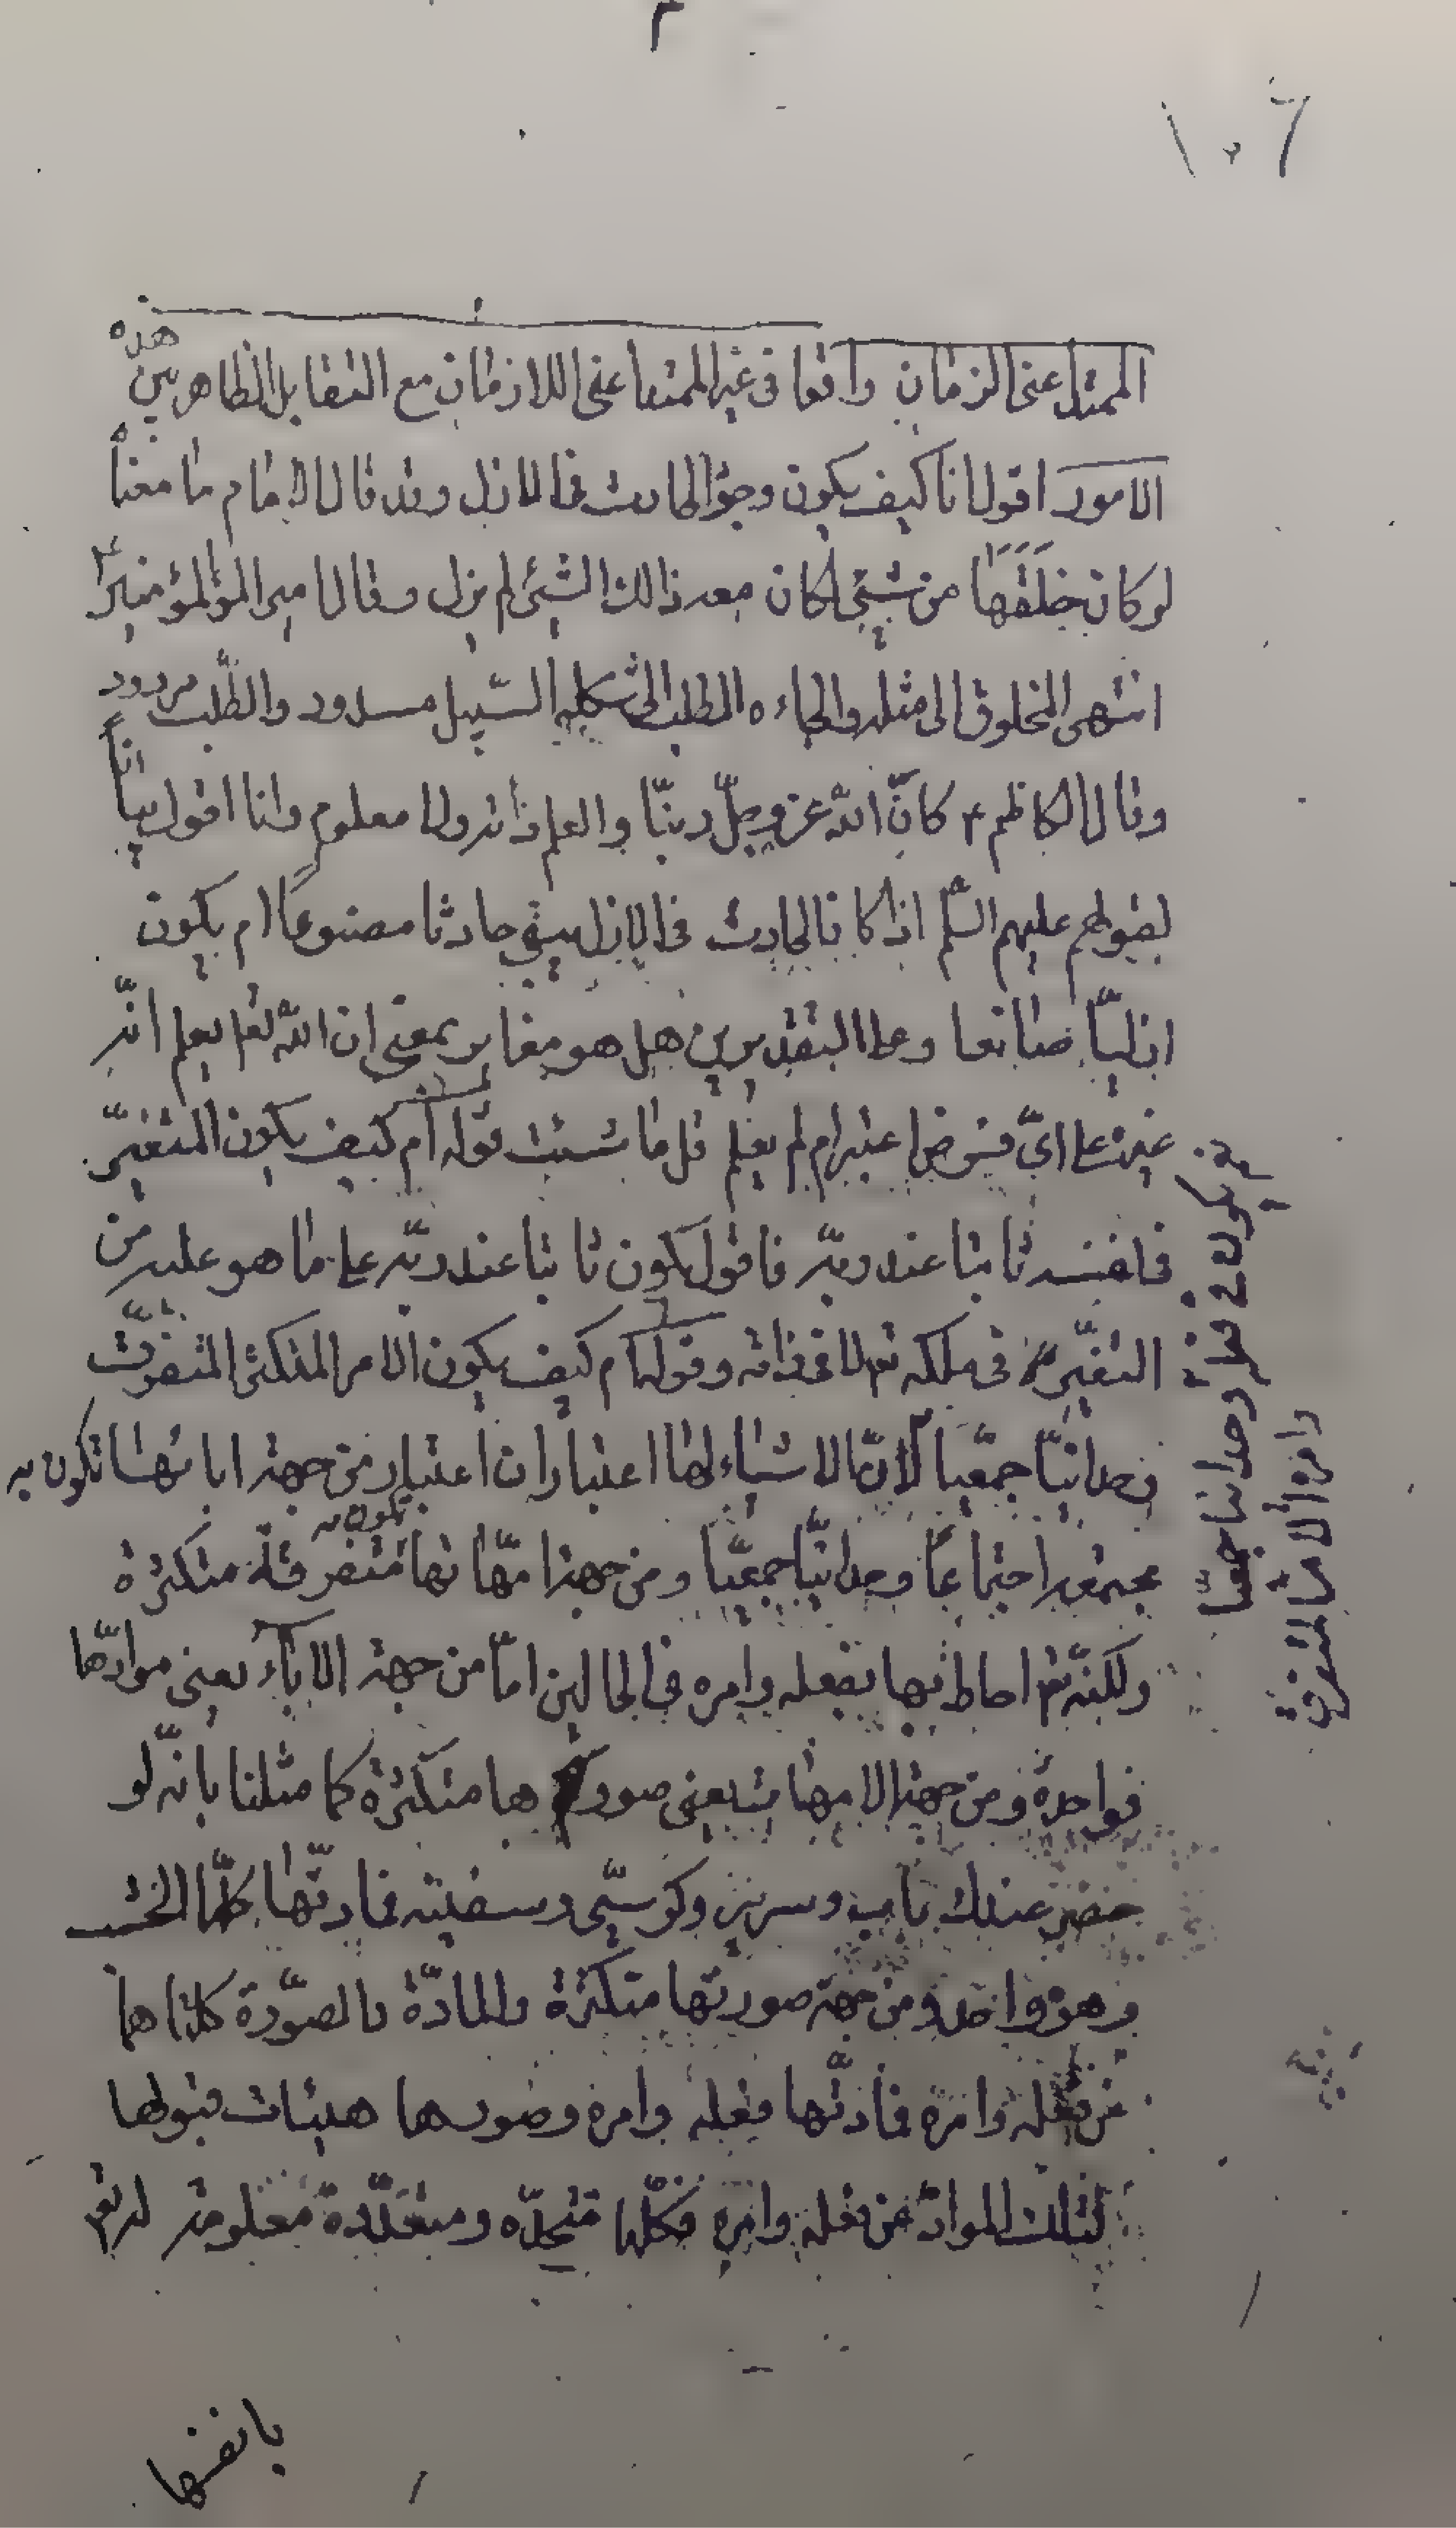 ١٠٦
الممتد اعنى الزمان واقعا فى غير الممتد اعنى اللازمان مع التقابل الظاهر بين هذه
الامور اقول انا كيف يكون وجود الحادث فى الازل وقد قال الامام ما معناه
لو كان خلقها من شئ لكان معه ذالك الشئ لم يزل وقال امير المؤمنين ع
انتهى المخلوق الى مثله والجاءه الطلب الى شكله السبيل مسدود والطلب مردود
وقال الكاظم ع كان الله عز وجل ربنا والعلم ذاته ولا معلوم وانا اقول بياناً
لقولهم عليهم السلم اذا كان الحادث فى الازل يبقى حادثا مصنوعا ام يكون
ازليّا صانعا وعلى التقديرين هل هو مغاير بمعنى ان الله تعا يعلم انّه
غيره على اىّ فرض اعتبر ام لم يعلم قل ما شئت قوله ام كيف يكون المتغيّر
فى نفسه ثابتا عند ربّه فاقول يكون ثابتا عند ربّه على ما هو عليه من
التغيّر فى ملكه تع لا فى ذاته وقوله ام كيف يكون الامر المتكثر المتفرّق
وحدانيّا جمعيّا لانّ الاشياء لها اعتباران اعتبار من جهة ابائها تكون به
مجتمعة اجتماعاً وحدانيّا جمعيّا ومن جهة امّهاتها تكون به متفرقة متكثرة
ولكنّه تع احاط بها بفعله وامره فى الحالين امّا من جهة الاباء يعنى موادّها
فواحدة ومن جهة الامهات يعنى صورها متكثرة كما مثلنا بانّه لو
حضر عندك باب وسرير وكرسىّ وسفينة فمادّتها كلّها الخشب
وهو واحد ومن جهة صورتها متكثرة والمادّة والصّورة كلتاهما
من فعله وامره فمادّتها فعله وامره وصورها هيئات قبولها
لتلك الموادّ من فعله وامره فكلّها متّحدة ومتعدّدة معلومة له تع
بانفسها
يكون فى
وحدانيا جمعيّا
وامره الامر المتفرق